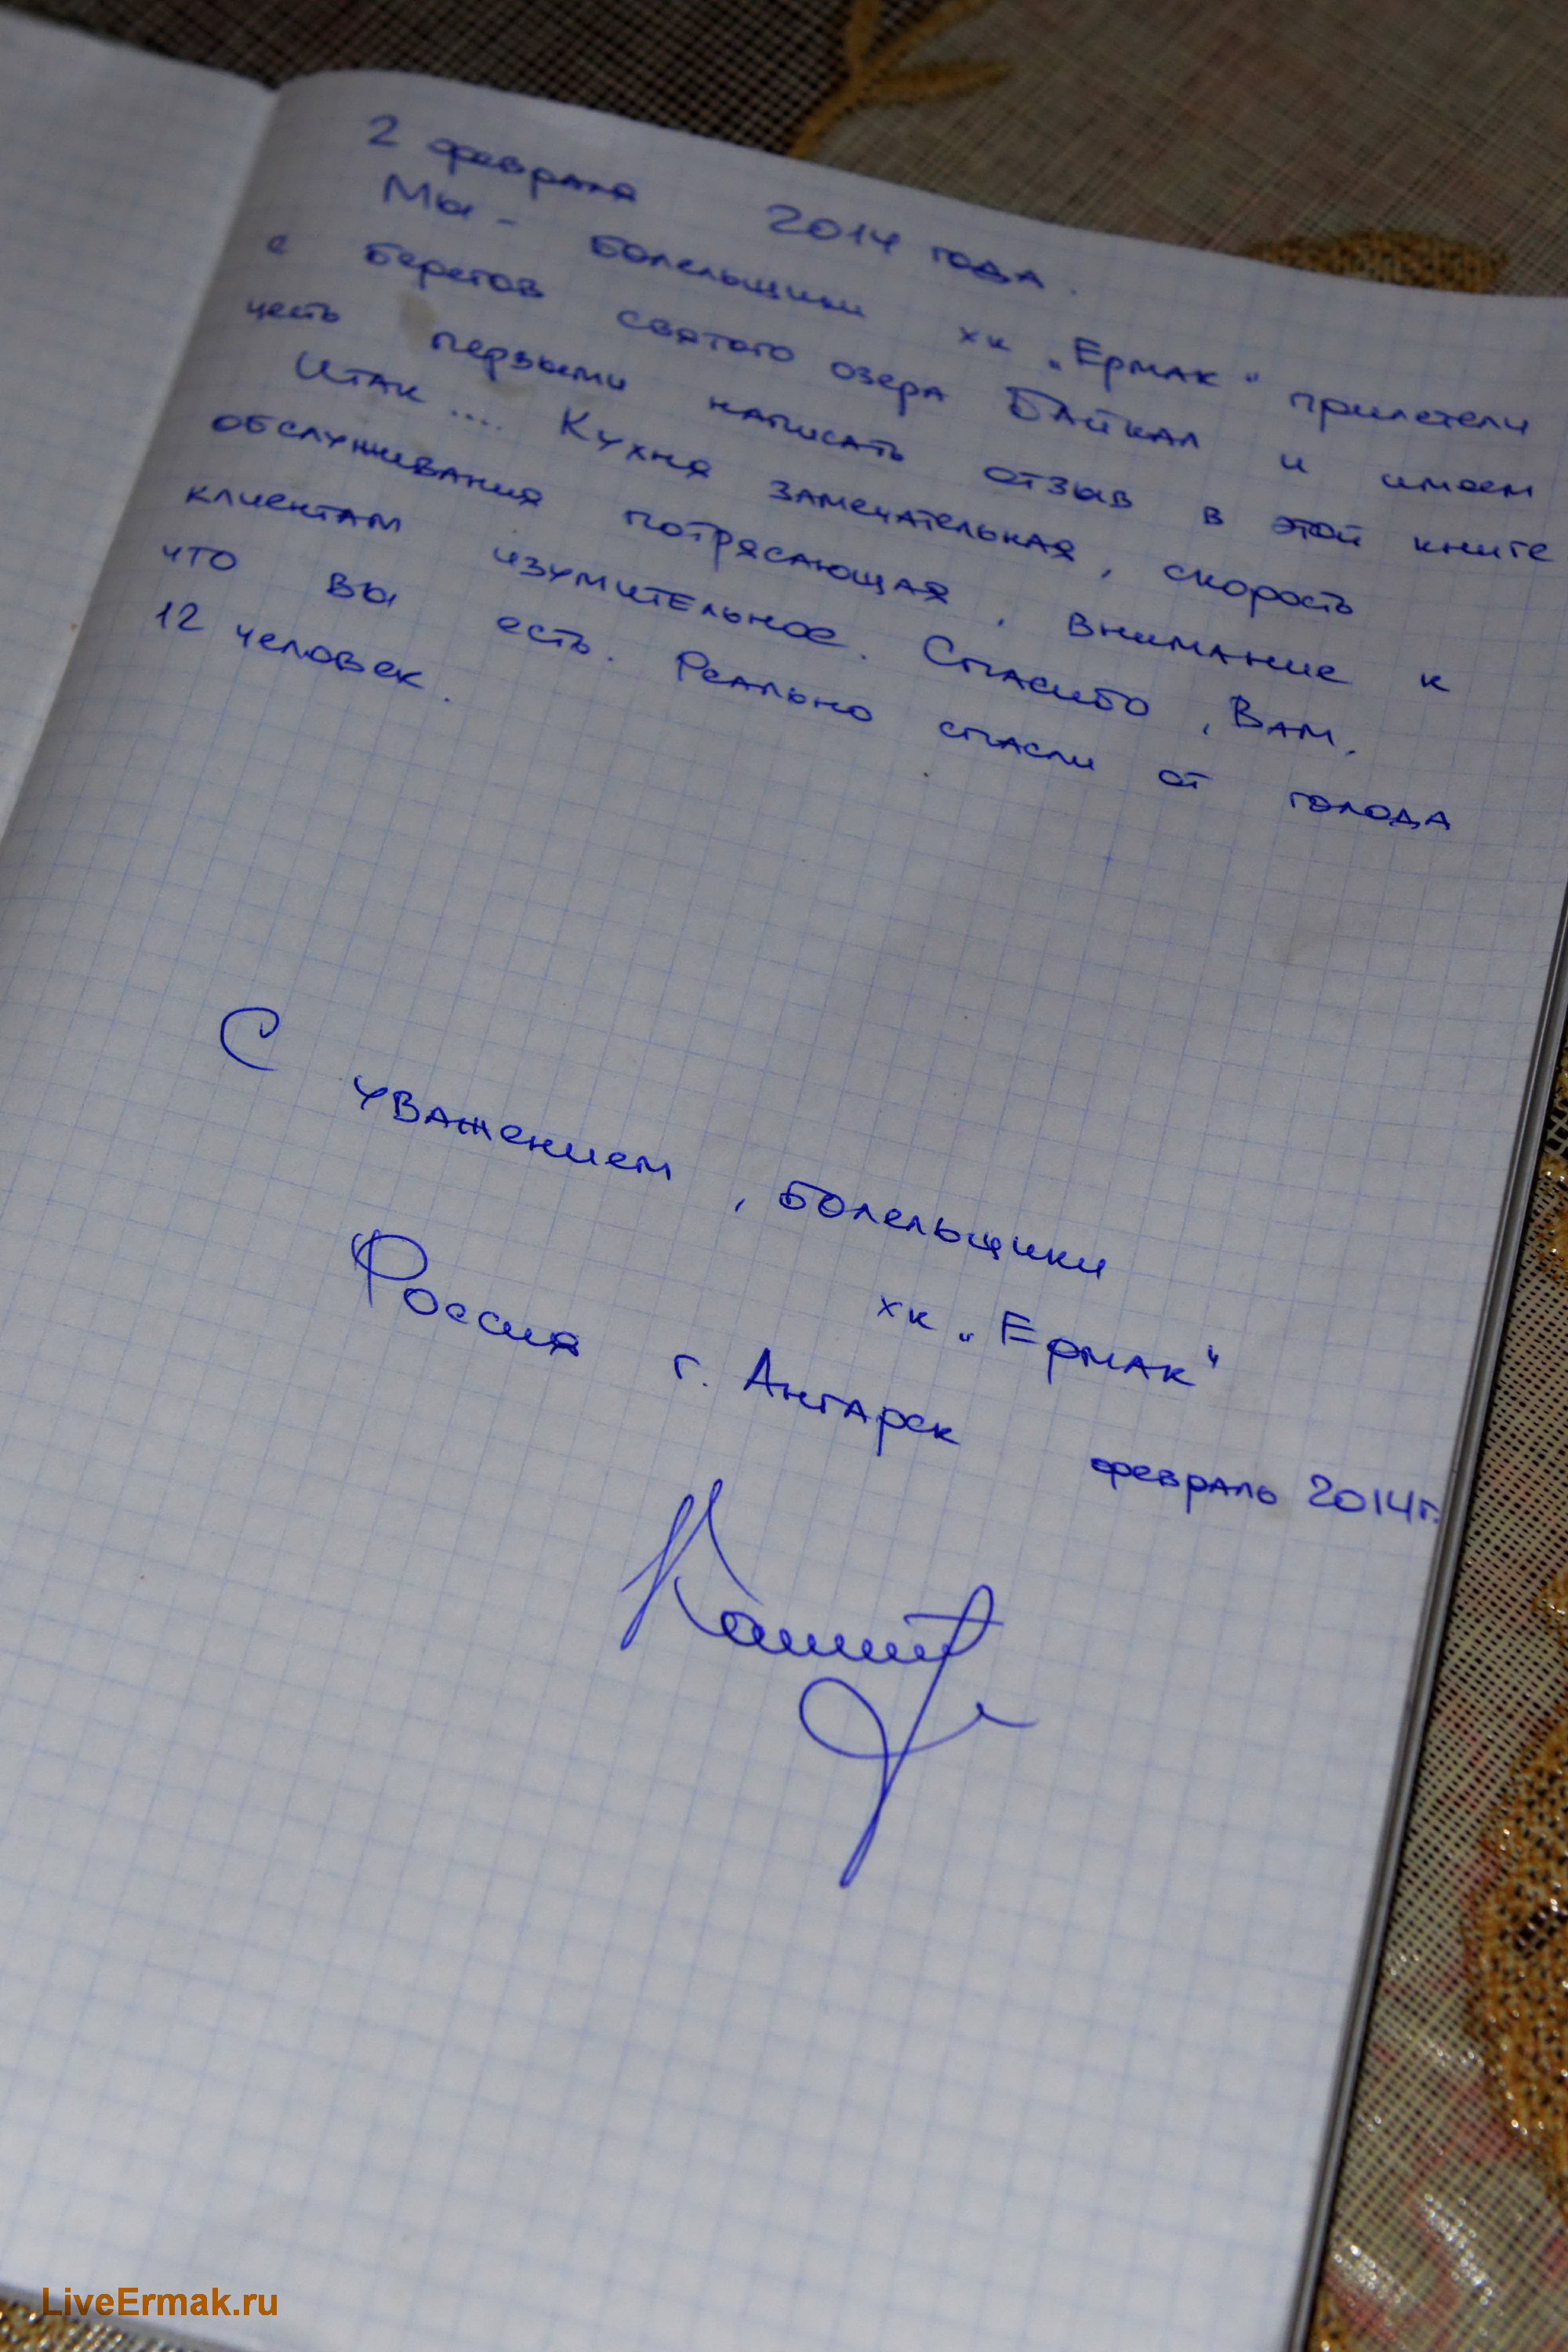 2 февраля 2014 года.
Мы - болельщики хк „Ермак" прилетели
с берегов святого озера Байкал и имеем
честь первыми написать отзыв в этой книге
Итак .... Кухня замечательная, скорость
обслуживания потрясающая, внимание к
клиентам изумительное. Спасибо, Вам,
что вы есть. Реально спасли от голода
12 человек.
С уважением, болельщики
хк „Ермак"
Россия г. Ангарск февраль 2014г.
LiveErmak.ru